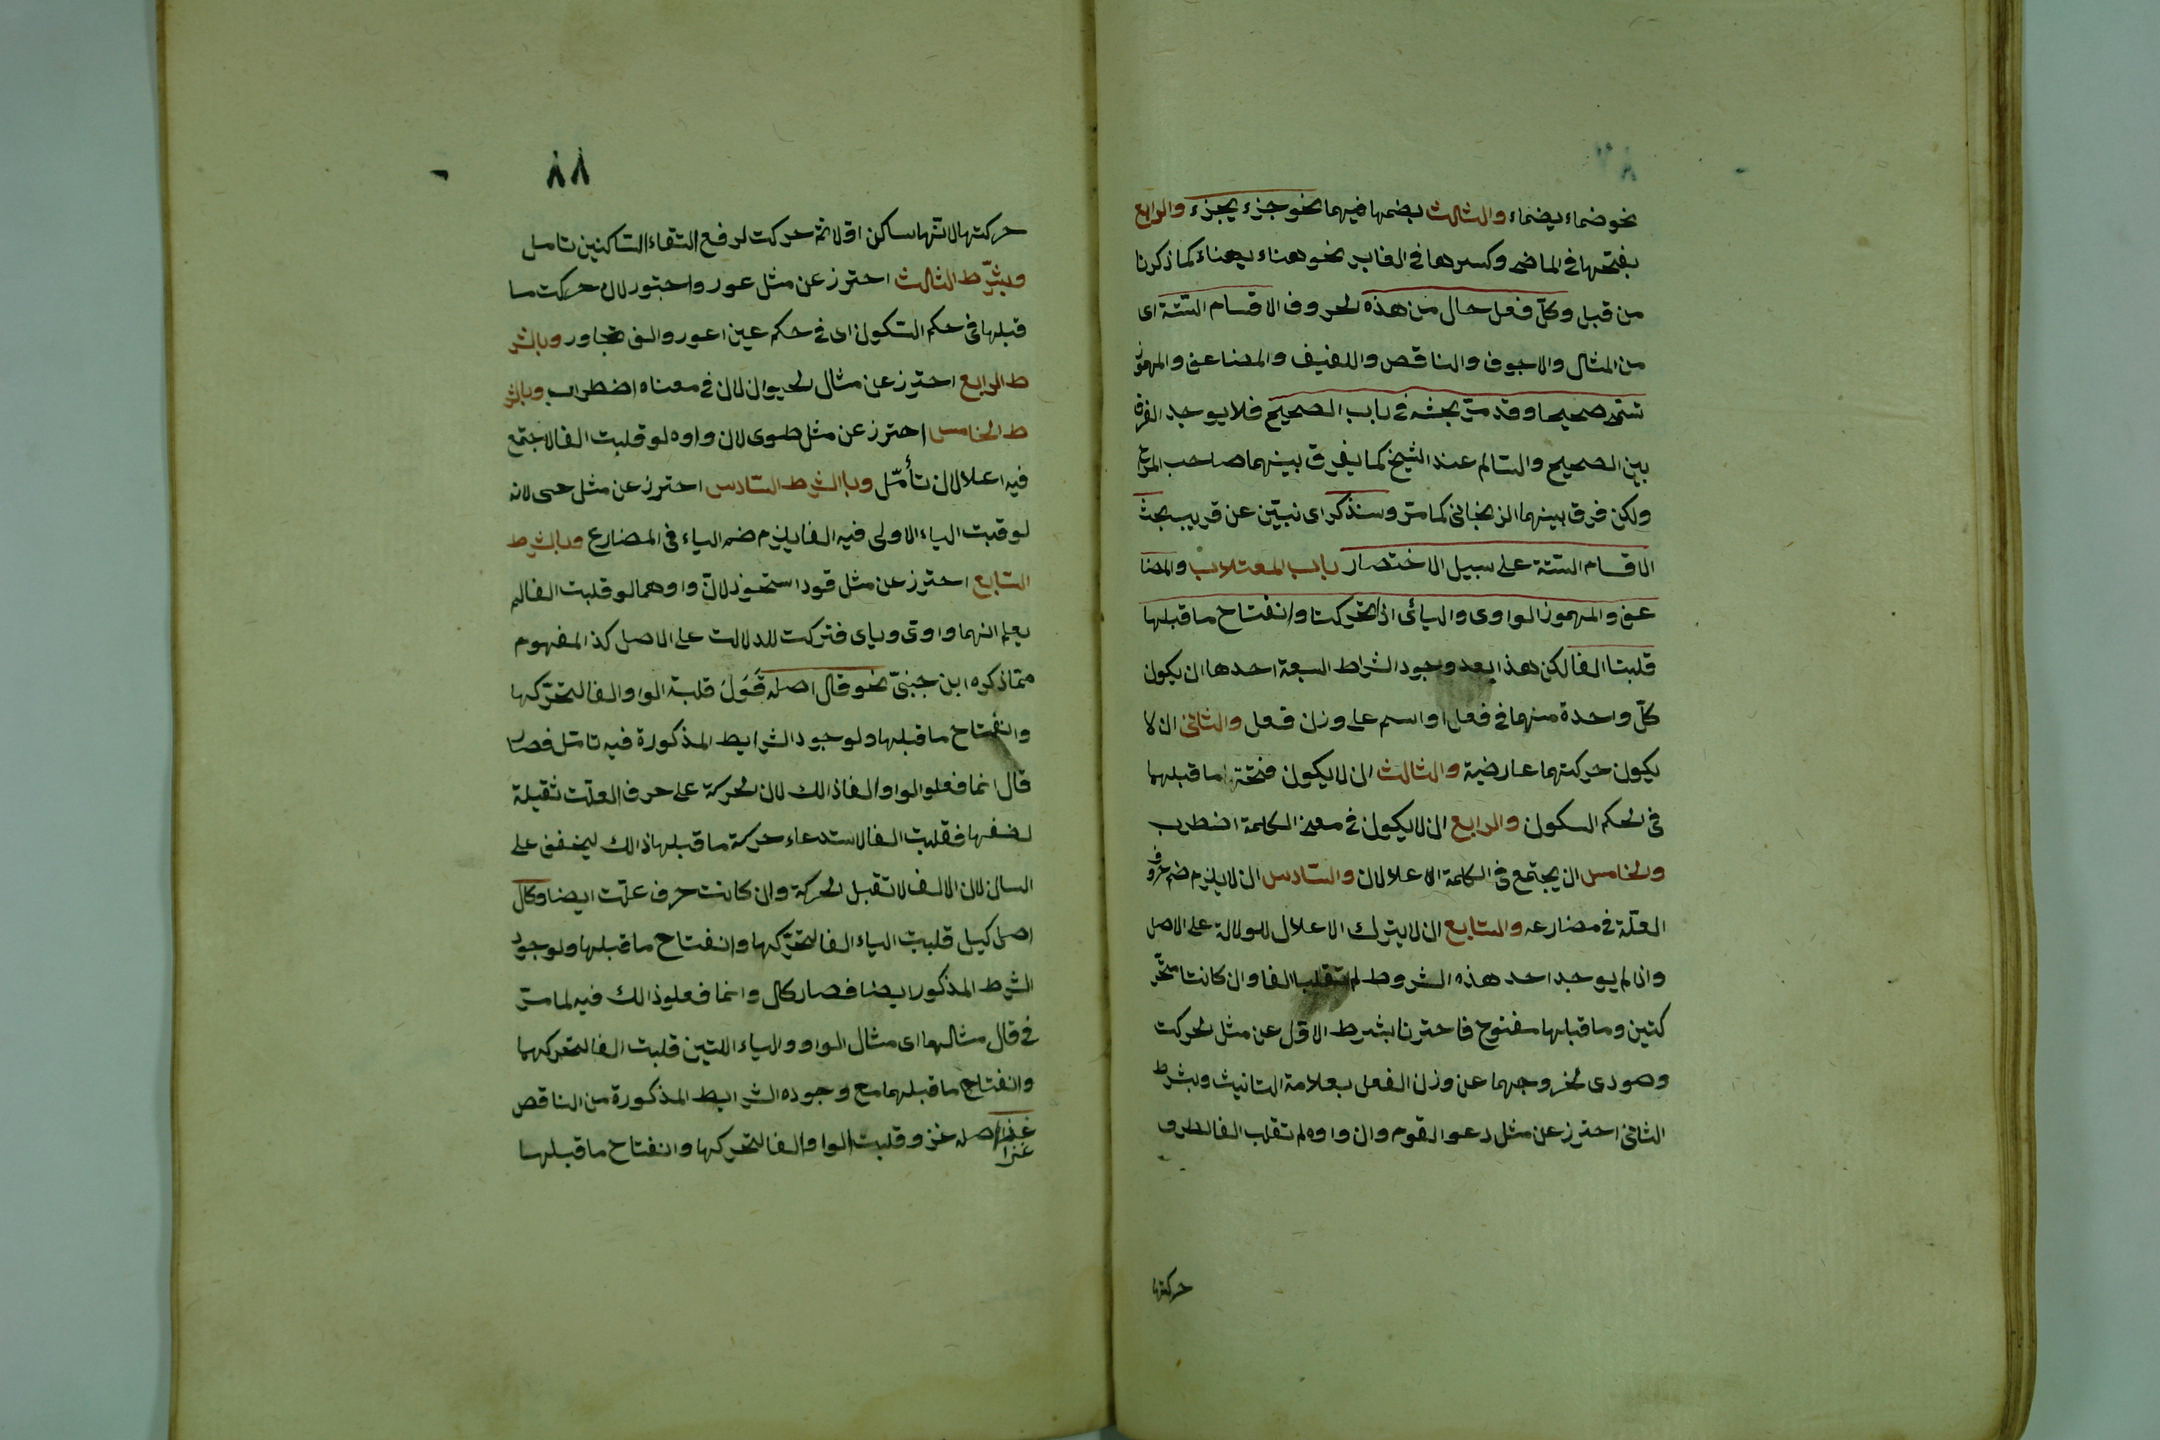 ٨٧
نحو ضماء يضماء والثالث بضمها فيهما نحو جزء يجزء والرابع
بفتحها في الماضى وكسرها في الغابر نحو هناء يهناء كما ذكرنا
من قبل وكل فعل حال من هذه الحروف الاقسام الستة اى
من المثال والاجوف والناقص واللفيف والمضاعف والمهموز
تسمى صحيحا وقد مرّ بحثه في باب الصحيح فلا يوجد الفرق
بين الصحيح والسالم عند الشيخ كما يفرق بينهما صاحب المراح
ولكن فرق بينهما الزنجانى كما مرّ وسنذكر اى نبيّن عن قريب بحث
الاقسام الستة على سبيل الاختصار باب المعتلات والمضا
عف والمهموز الواوى واليائى اذا تحركتا وانفتاح ما قبلها
قلبتا الفا لكن هذا بعد وجود الشراط السبعة احدها ان يكون
كلّ واحدة منهما في فعل او اسم على وزن فعل والثانى ان لا
يكون حركتهما عارضية والثالث ان لا يكون فتحة ما قبلهما
في الحكم السكون والرابع ان لا يكون في معنى الكلمة اضطرب
والخامس ان يجتمع في الكلمة الاعلالان والسّادس ان لا يلزم ضم حروف
العلّة في مضارعه والسّابع ان لا يترك الاعلال للدلالة على الاصل
وان لم يوجد احد هذه الشروط لم تقلب الفا وان كانتا متحّر
كتين وما قبلها مفتوح فاحترنا بشرط الاوّل عن مثل الحركت
وصودى لخروجهما عن وزن الفعل بعلامة التانيث وبشرط
الثانى احترز عن مثل دعوا القوم وان واوه لم تقلب الفا لطرف
حركتها
٨٨
حركتها لانها ساكن اولا ثم حركت لرفع التقاء السّاكنين تامل
وبشّرط الثالث احترز عن مثل عور واجتور لان حركت ما
قبلها في حكم السّكون اى في حكم عين اعور والف تجاور وبالشر
ط الرابع احترز عن مثال الحيوان لان في معناه اضطراب وبالشر
ط الخامس احترز عن مثل طوى لان واوه لو قلبت الفا لاجتمع
فيه اعلالان تأمّل وبا الشرط السّادس احترز عن مثل حى لانه
لو قبت الياء الاولى فيه الفا يلزم ضم الياء في المضارع وبا الشرط
السّابع احترز عن مثل قود استحوذ لانّ واوهما لو قلبت الفا لم
يعلم انهما واوىّ وياى فتركت للدلالت على الاصل كذ المفهوم
ممّا ذكره ابن جنىّ نحو قال اصله قَوَلَ قلبة الواو الفا لتحرّكها
وانفتاح ما قبلها ولوجود الشرايط المذكورة فيه تامّل فصار
قال انما فعلوا الواو الفا ذالك لان الحركة على حرف العلت ثقيلة
لضعفها فقلبت الفا لاستدعاء حركة ما قبلها ذالك ليخفف على
السان لان الالف لا تقبل الحركة وان كانت حرف علت ايضا وكال
اصل كيل قلبت الياء الفا لتحرّكها وانفتاح ما قبلها ولوجود
الشرط المذكور ايضا فصار كال وانما فعلو ذالك فيه لما مرّ
في قال مثالهما اى مثال الواو والياء اللتين قلبت الفا لتحركهما
وانفتاح ما قبلهما مع وجوده الشرايط المذكورة من الناقص
غزا اصله غزو قلبت الواو الفا لتحركها وانفتاح ما قبلها
غزا